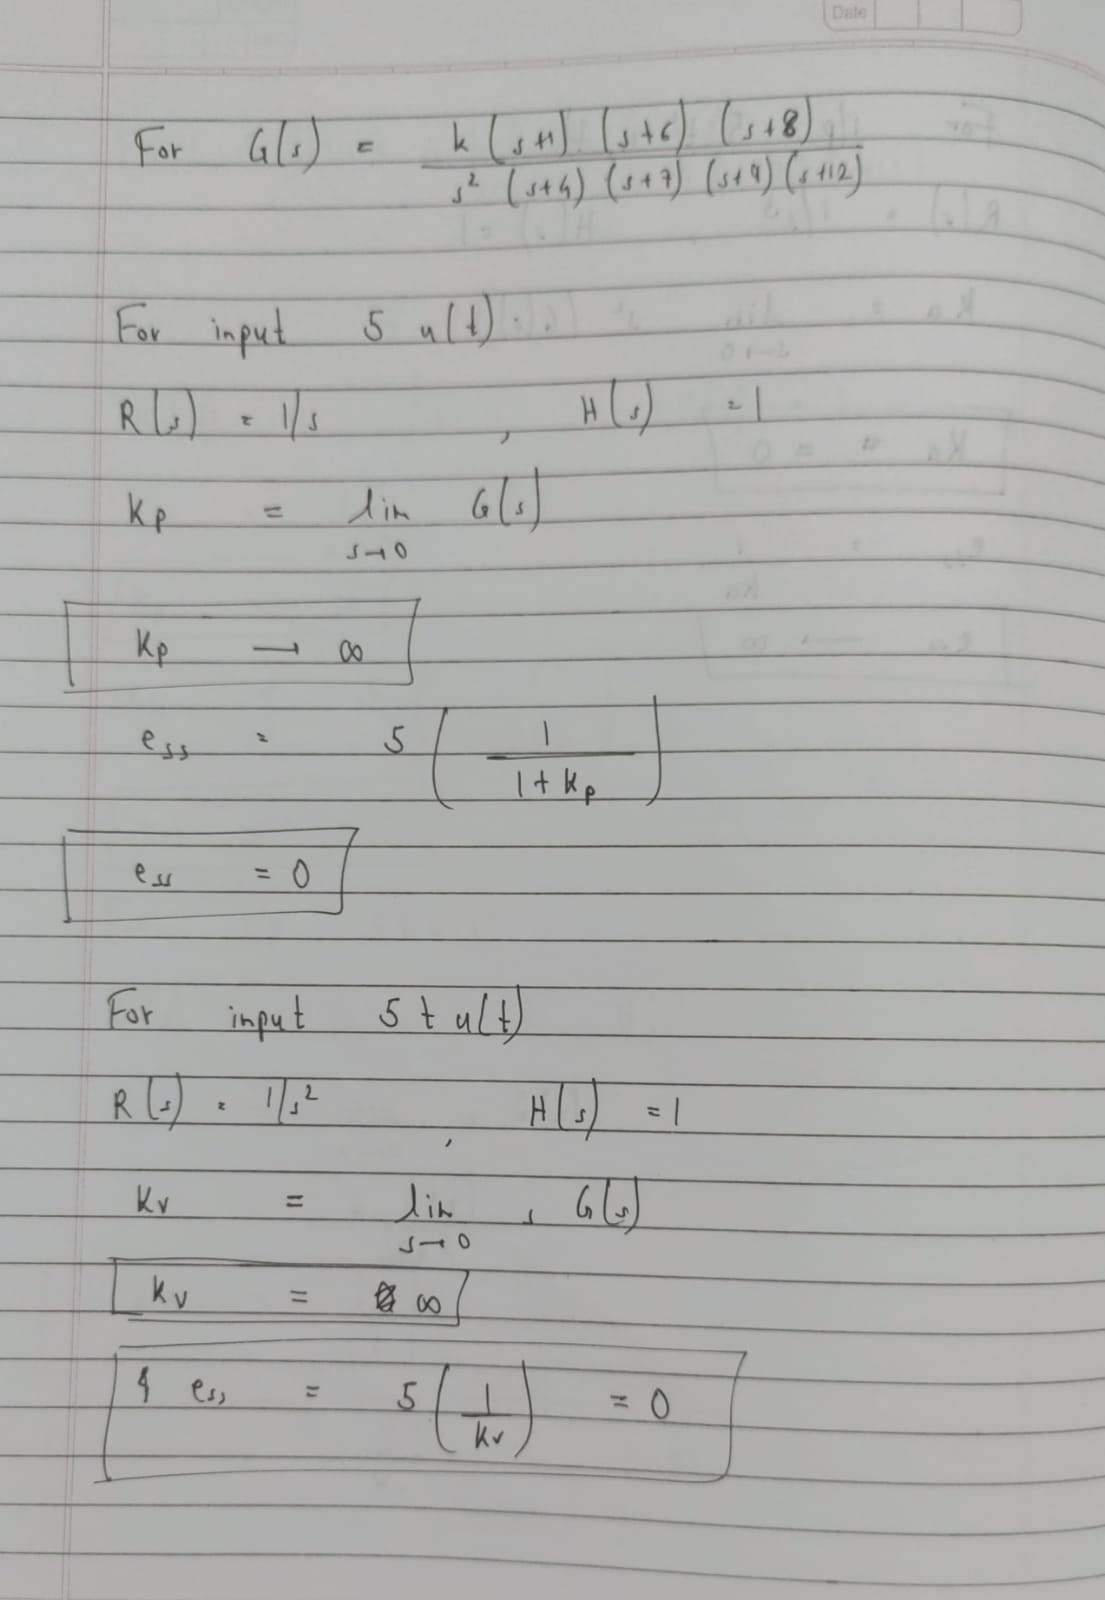 Date
For G(s) = k (s+1) (s+6) (s+8)
s² (s+4) (s+7) (s+9) (s+12)
For input 5 u(t)
R(s) = 1/s , H(s) = 1
Kp = lim G(s)
s→0
Kp → ∞
ess = 5 ( 1
1 + Kp )
ess = 0
For input 5 t u(t)
R(s) = 1/s² , H(s) = 1
Kv = lim s G(s)
s→0
Kv = ∞
& ess = 5 ( 1 ) = 0
Kv